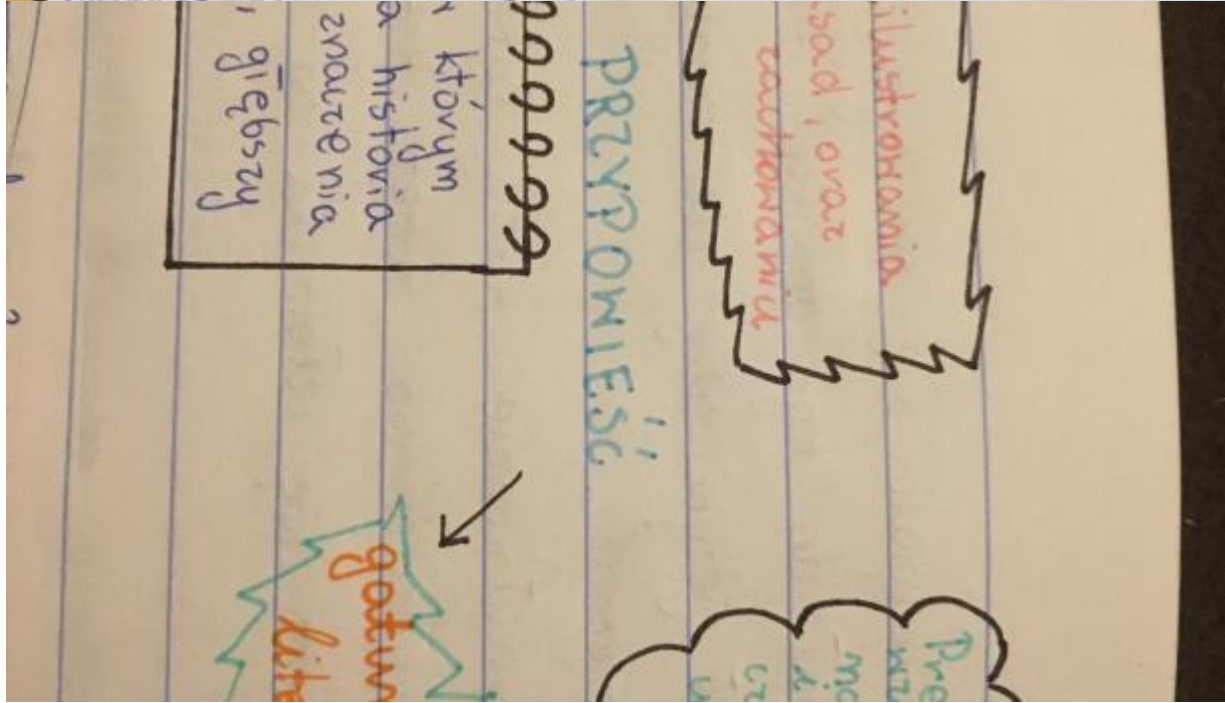 ilustrowania
sad, oraz
zachowaniu
PRZYPOWIEŚĆ
którym
a historia
znaczenia
, głębszy
gatun
lite
Pre
i